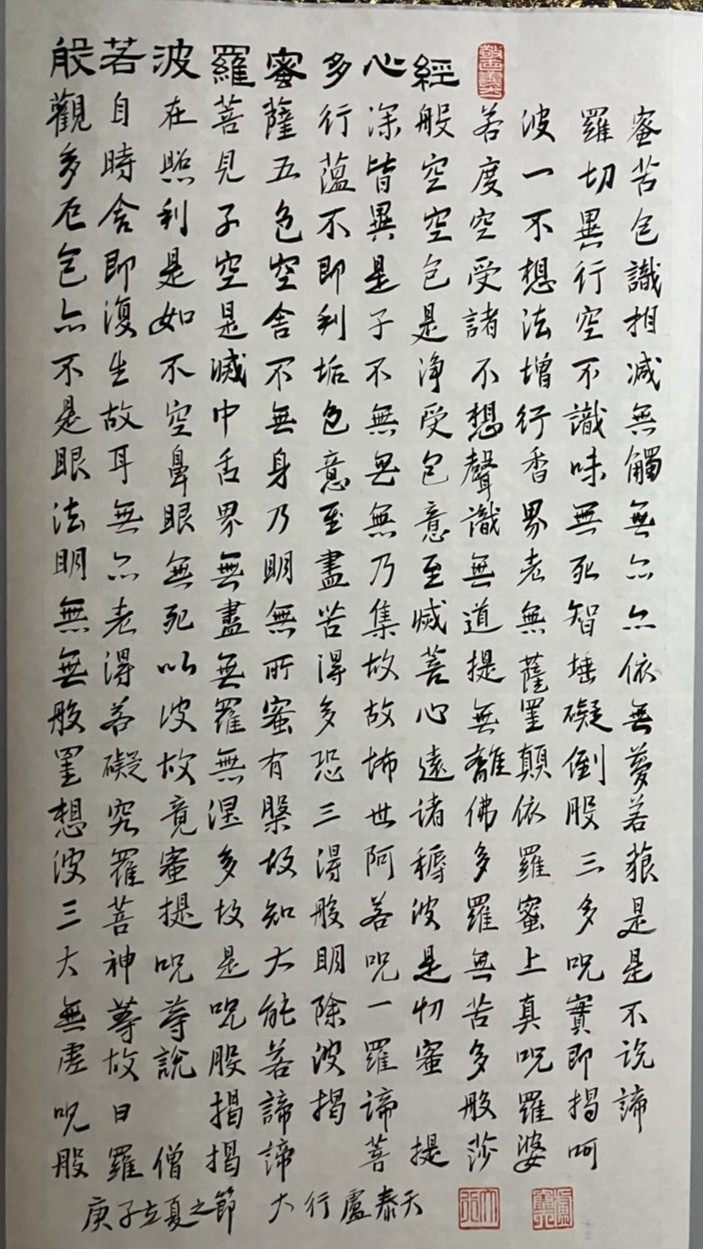 般若波羅蜜多心經
觀自在菩薩行深般若波羅蜜
多時照見五蘊皆空度一切苦
厄舍利子色不異空空不異色
色即是空空即是色受想行識
亦復如是舍利子是諸法空相
不生不滅不垢不淨不增不減
是故空中無色無受想行識無
眼耳鼻舌身意無色聲香味觸
法無眼界乃至無意識界無無
明亦無無明盡乃至無老死亦
無老死盡無苦集滅道無智亦
無得以無所得故菩提薩埵依
般若波羅蜜多故心無罣礙無
罣礙故無有恐怖遠離顛倒夢
想究竟涅槃三世諸佛依般若
波羅蜜多故得阿耨多羅三藐
三菩提故知般若波羅蜜多是
大神呪是大明呪是無上呪是
無等等呪能除一切苦真實不
虛故說般若波羅蜜多呪即說
呪曰 揭諦揭諦 般羅揭諦
般羅僧揭諦 菩提莎婆呵
庚子立夏之節 大行盧泰天